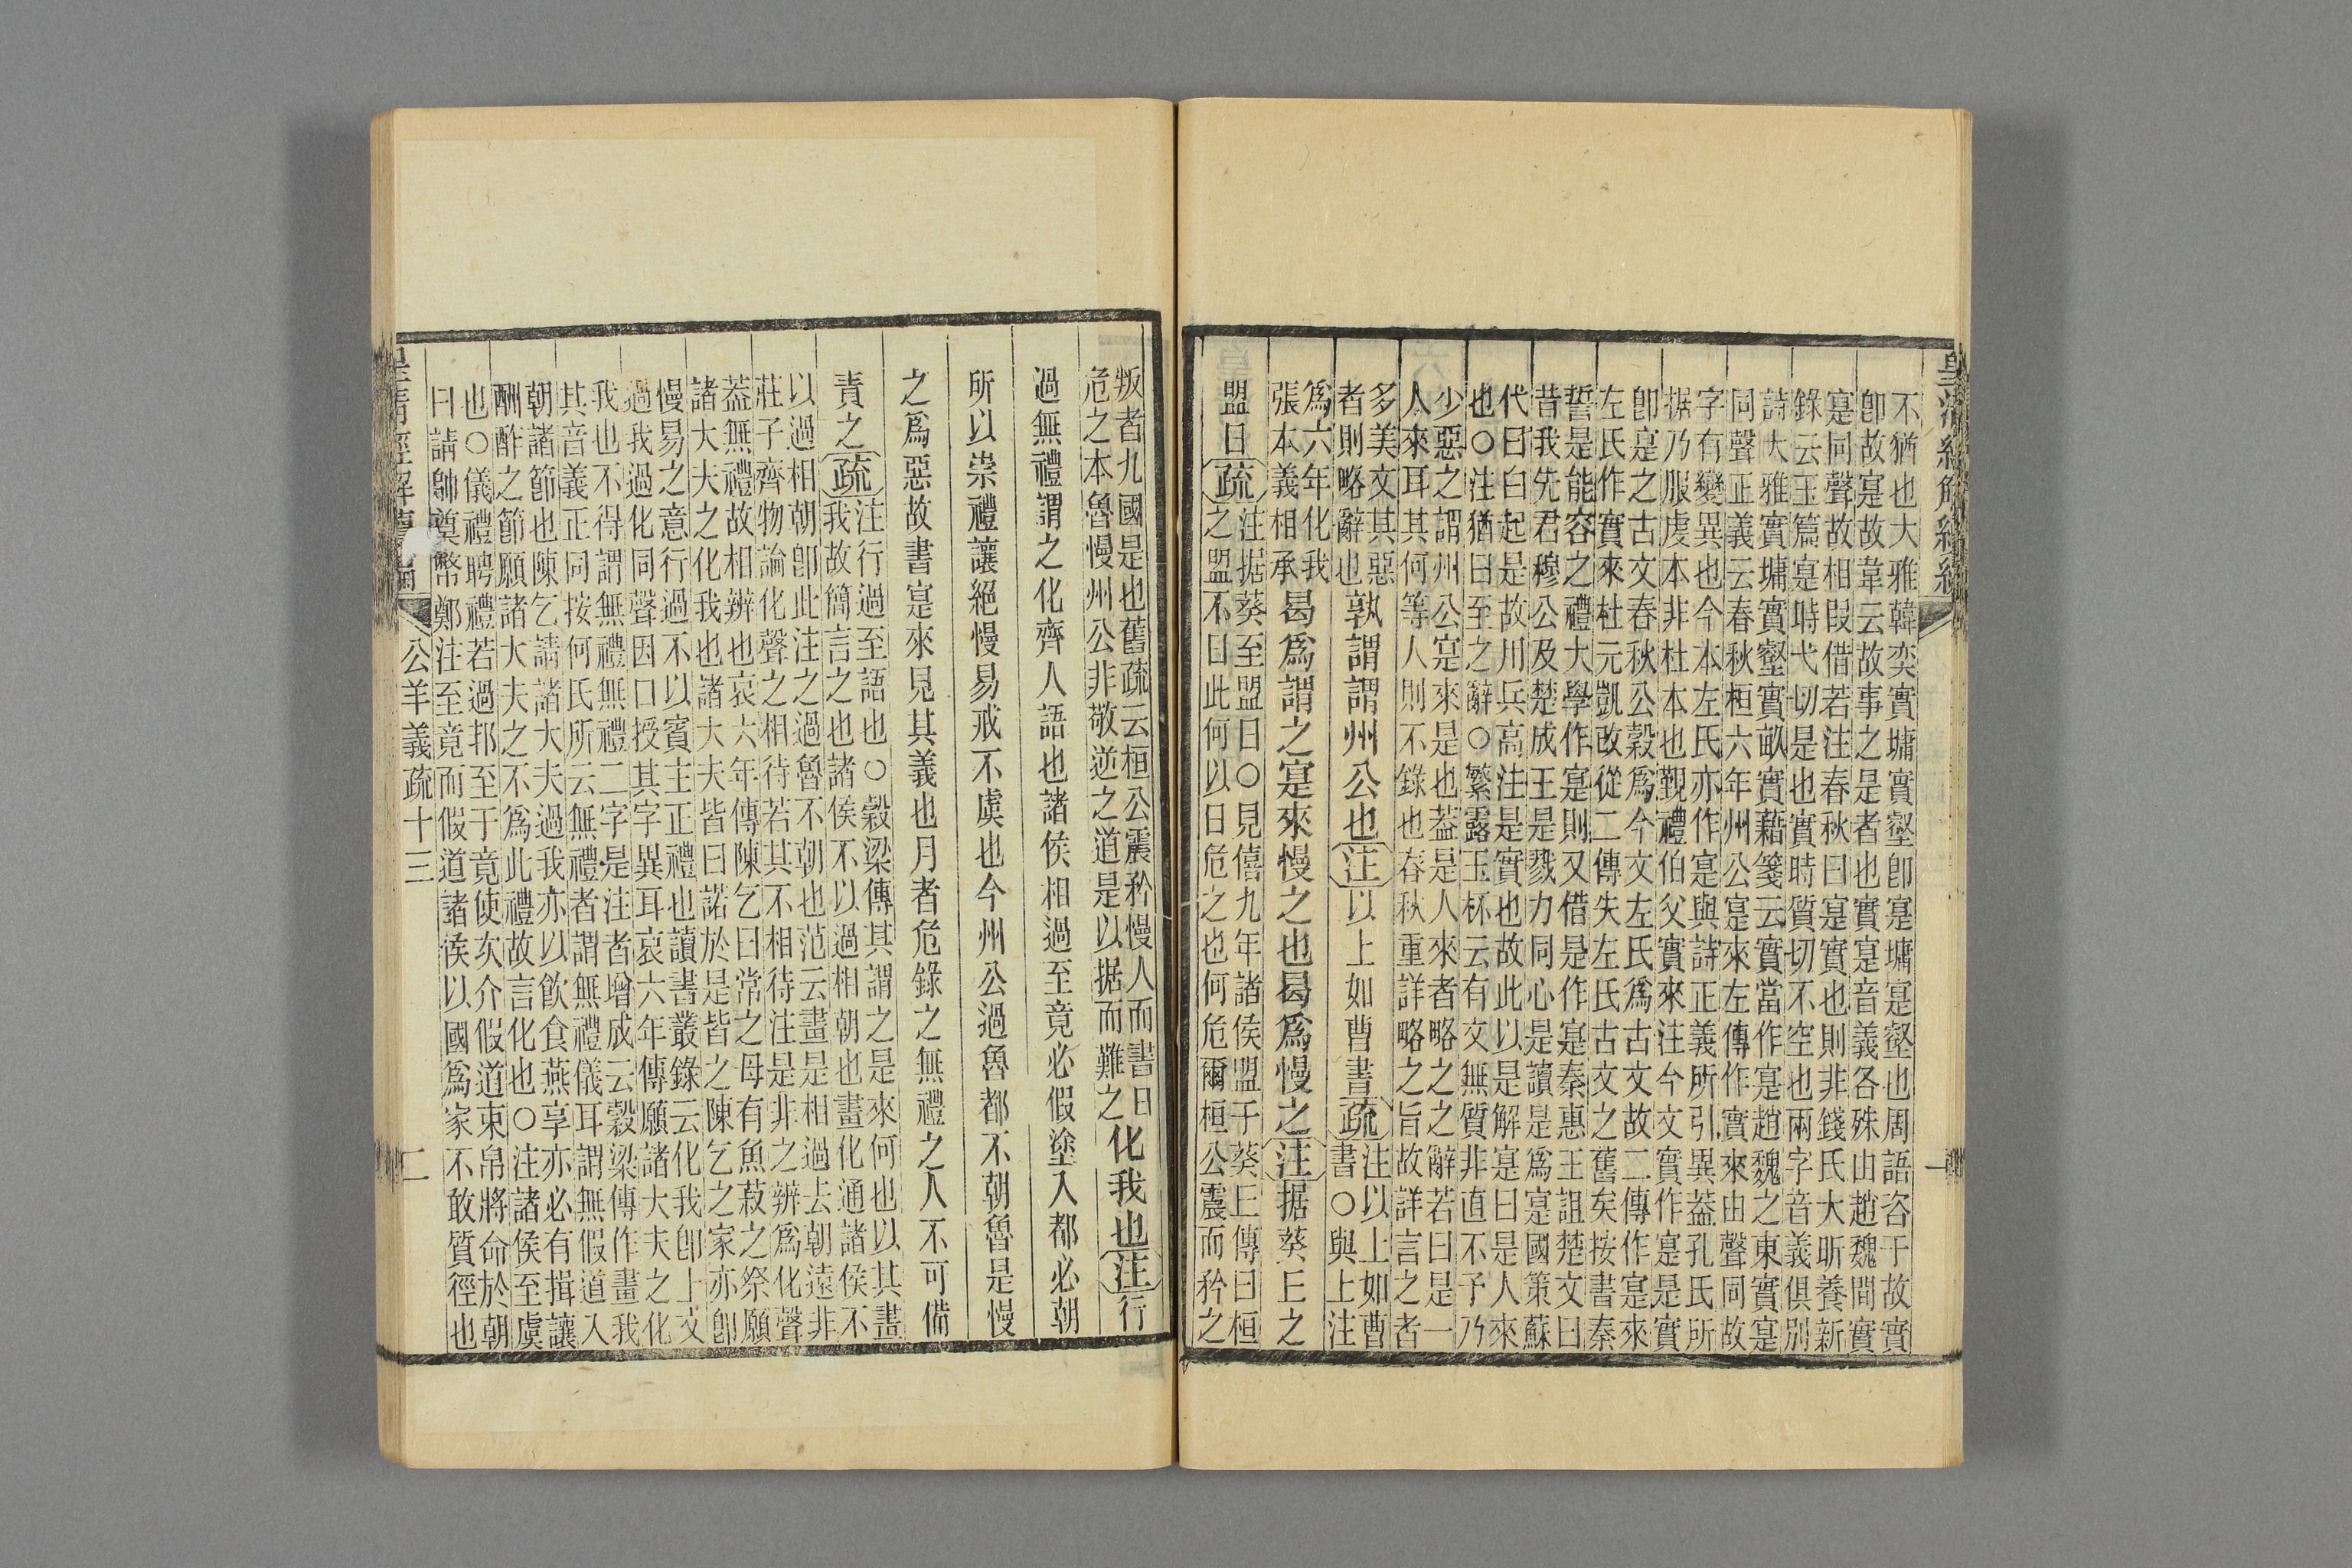 皇清經解續編
不猶也大雅韓奕實墉實壑卽寔墉寔壑也周語咨于故實
卽故寔故韋云故事之是者也實寔音義各殊山趙魏間實
寔同聲故相叚借若注春秋曰寔實也則非錢氏大昕養新
錄云玉篇寔時弋切是也實時質切不空也兩字音義俱別
詩大雅實墉實壑實畝實藉箋云實當作寔趙魏之東實寔
同聲正義云春秋桓六年州公寔來左傳作實來由聲同故
字有變異也今本左氏亦作寔與詩正義所引異蓋孔氏所
据乃服虔本非杜本也覲禮伯父實來注今文實作寔是實
卽寔之古文春秋公穀爲今文左氏爲古文故二傳作寔來
左氏作實來杜元凱改從二傳失左氏古文之舊矣按書秦
誓是能容之禮大學作寔則又借是作寔秦惠王詛楚文曰
昔我先君穆公及楚成王是戮力同心是讀是爲寔國策蘇
代曰白起是故川兵高注是實也故此以是解寔曰是人來
也○注猶曰至之辭○繁露玉杯云有文無質非直不予乃
少惡之謂州公寔來是也蓋是人來者略之之辭若曰是一
人來耳其何等人則不錄也春秋重詳略之旨故詳言之者
多美文其惡
者則略辭也孰謂謂州公也注以上如曹書疏注以上如曹
書○與上注
爲六年化我
張本義相承曷爲謂之寔來慢之也曷爲慢之注据葵丘之
盟日疏注据葵至盟日○見僖九年諸侯盟于葵丘傳曰桓
之盟不日此何以日危之也何危爾桓公震而矜之
一
叛者九國是也舊疏云桓公震矜慢人而書日
危之本魯慢州公非敬逆之道是以据而難之化我也注行
過無禮謂之化齊人語也諸侯相過至竟必假塗入都必朝
所以崇禮讓絕慢易戒不虞也今州公過魯都不朝魯是慢
之爲惡故書寔來見其義也月者危錄之無禮之人不可備
責之疏注行過至語也○穀梁傳其謂之是來何也以其畫
我故簡言之也諸侯不以過相朝也畫化通諸侯不
以過相朝卽此注之過魯不朝也范云畫是相過去朝遠非
莊子齊物論化聲之相待若其不相待注是非之辨爲化聲
蓋無禮故相辨也哀六年傳陳乞曰常之母有魚菽之祭願
諸大夫之化我也諸大夫皆曰諾於是皆之陳乞之家亦卽
慢易之意行過不以賓主正禮也讀書叢錄云化我卽上文
過我過化同聲因口授其字異耳哀六年傳願諸大夫之化
我也不得謂無禮無禮二字是注者增成云穀梁傳作畫我
其音義正同按何氏所云無禮者謂無禮儀耳謂無假道入
朝諸節也陳乞請諸大夫過我亦以飮食燕享亦必有揖讓
酬酢之節願諸大夫之不爲此禮故言化也○注諸侯至虞
也○儀禮聘禮若過邦至于竟使次介假道束帛將命於朝
曰請帥奠幣鄭注至竟而假道諸侯以國爲家不敢質徑也
公羊義疏十三
二